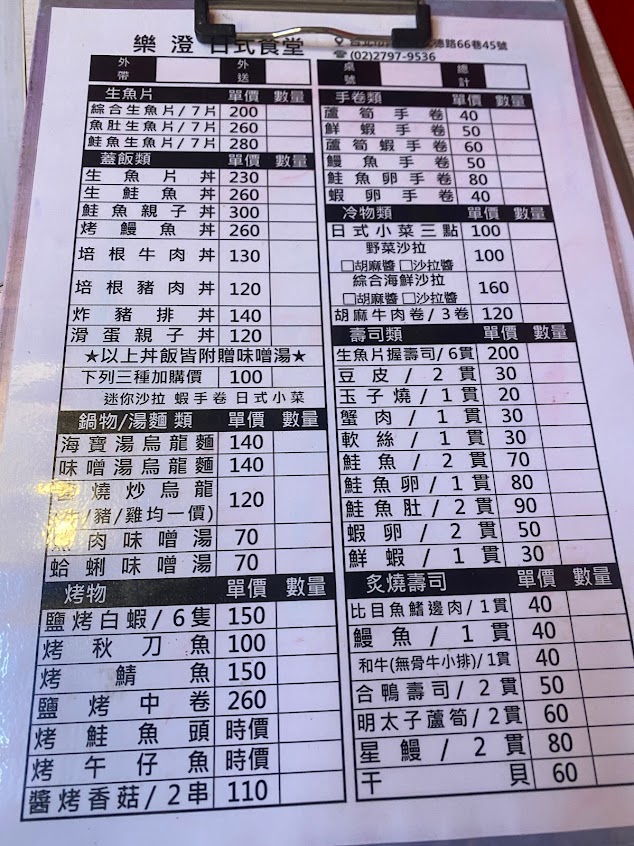 樂澄 日式食堂
德路66巷45號
(02)2797-9536
外帶 外送 桌號 總計
生魚片 單價 數量
綜合生魚片/7片 200
魚肚生魚片/7片 260
鮭魚生魚片/7片 280
蓋飯類 單價 數量
生魚片丼 230
生鮭魚丼 260
鮭魚親子丼 300
烤鰻魚丼 260
培根牛肉丼 130
培根豬肉丼 120
炸豬排丼 140
滑蛋親子丼 120
★以上丼飯皆附贈味噌湯★
下列三種加購價 100
迷你沙拉 蝦手卷 日式小菜
鍋物/湯麵類 單價 數量
海寶湯烏龍麵 140
味噌湯烏龍麵 140
燒炒烏龍 120
/豬/雞均一價)
肉味噌湯 70
蛤蜊味噌湯 70
烤物 單價 數量
鹽烤白蝦/6隻 150
烤秋刀魚 100
烤鯖魚 150
鹽烤中卷 260
烤鮭魚頭 時價
烤午仔魚 時價
醬烤香菇/2串 110
手卷類 單價 數量
蘆筍手卷 40
鮮蝦手卷 50
蘆筍蝦手卷 60
鰻魚手卷 50
鮭魚卵手卷 80
蝦卵手卷 40
冷物類 單價 數量
日式小菜三點 100
野菜沙拉 100
□胡麻醬 □沙拉醬
綜合海鮮沙拉 160
□胡麻醬 □沙拉醬
胡麻牛肉卷/3卷 120
壽司類 單價 數量
生魚片握壽司/6貫 200
豆皮/2貫 30
玉子燒/1貫 20
蟹肉/1貫 30
軟絲/1貫 30
鮭魚/2貫 70
鮭魚卵/1貫 80
鮭魚肚/2貫 90
蝦卵/2貫 50
鮮蝦/1貫 30
炙燒壽司 單價 數量
比目魚鰭邊肉/1貫 40
鰻魚/1貫 40
和牛(無骨牛小排)/1貫 40
合鴨壽司/2貫 50
明太子蘆筍/2貫 60
星鰻/2貫 80
干貝 60